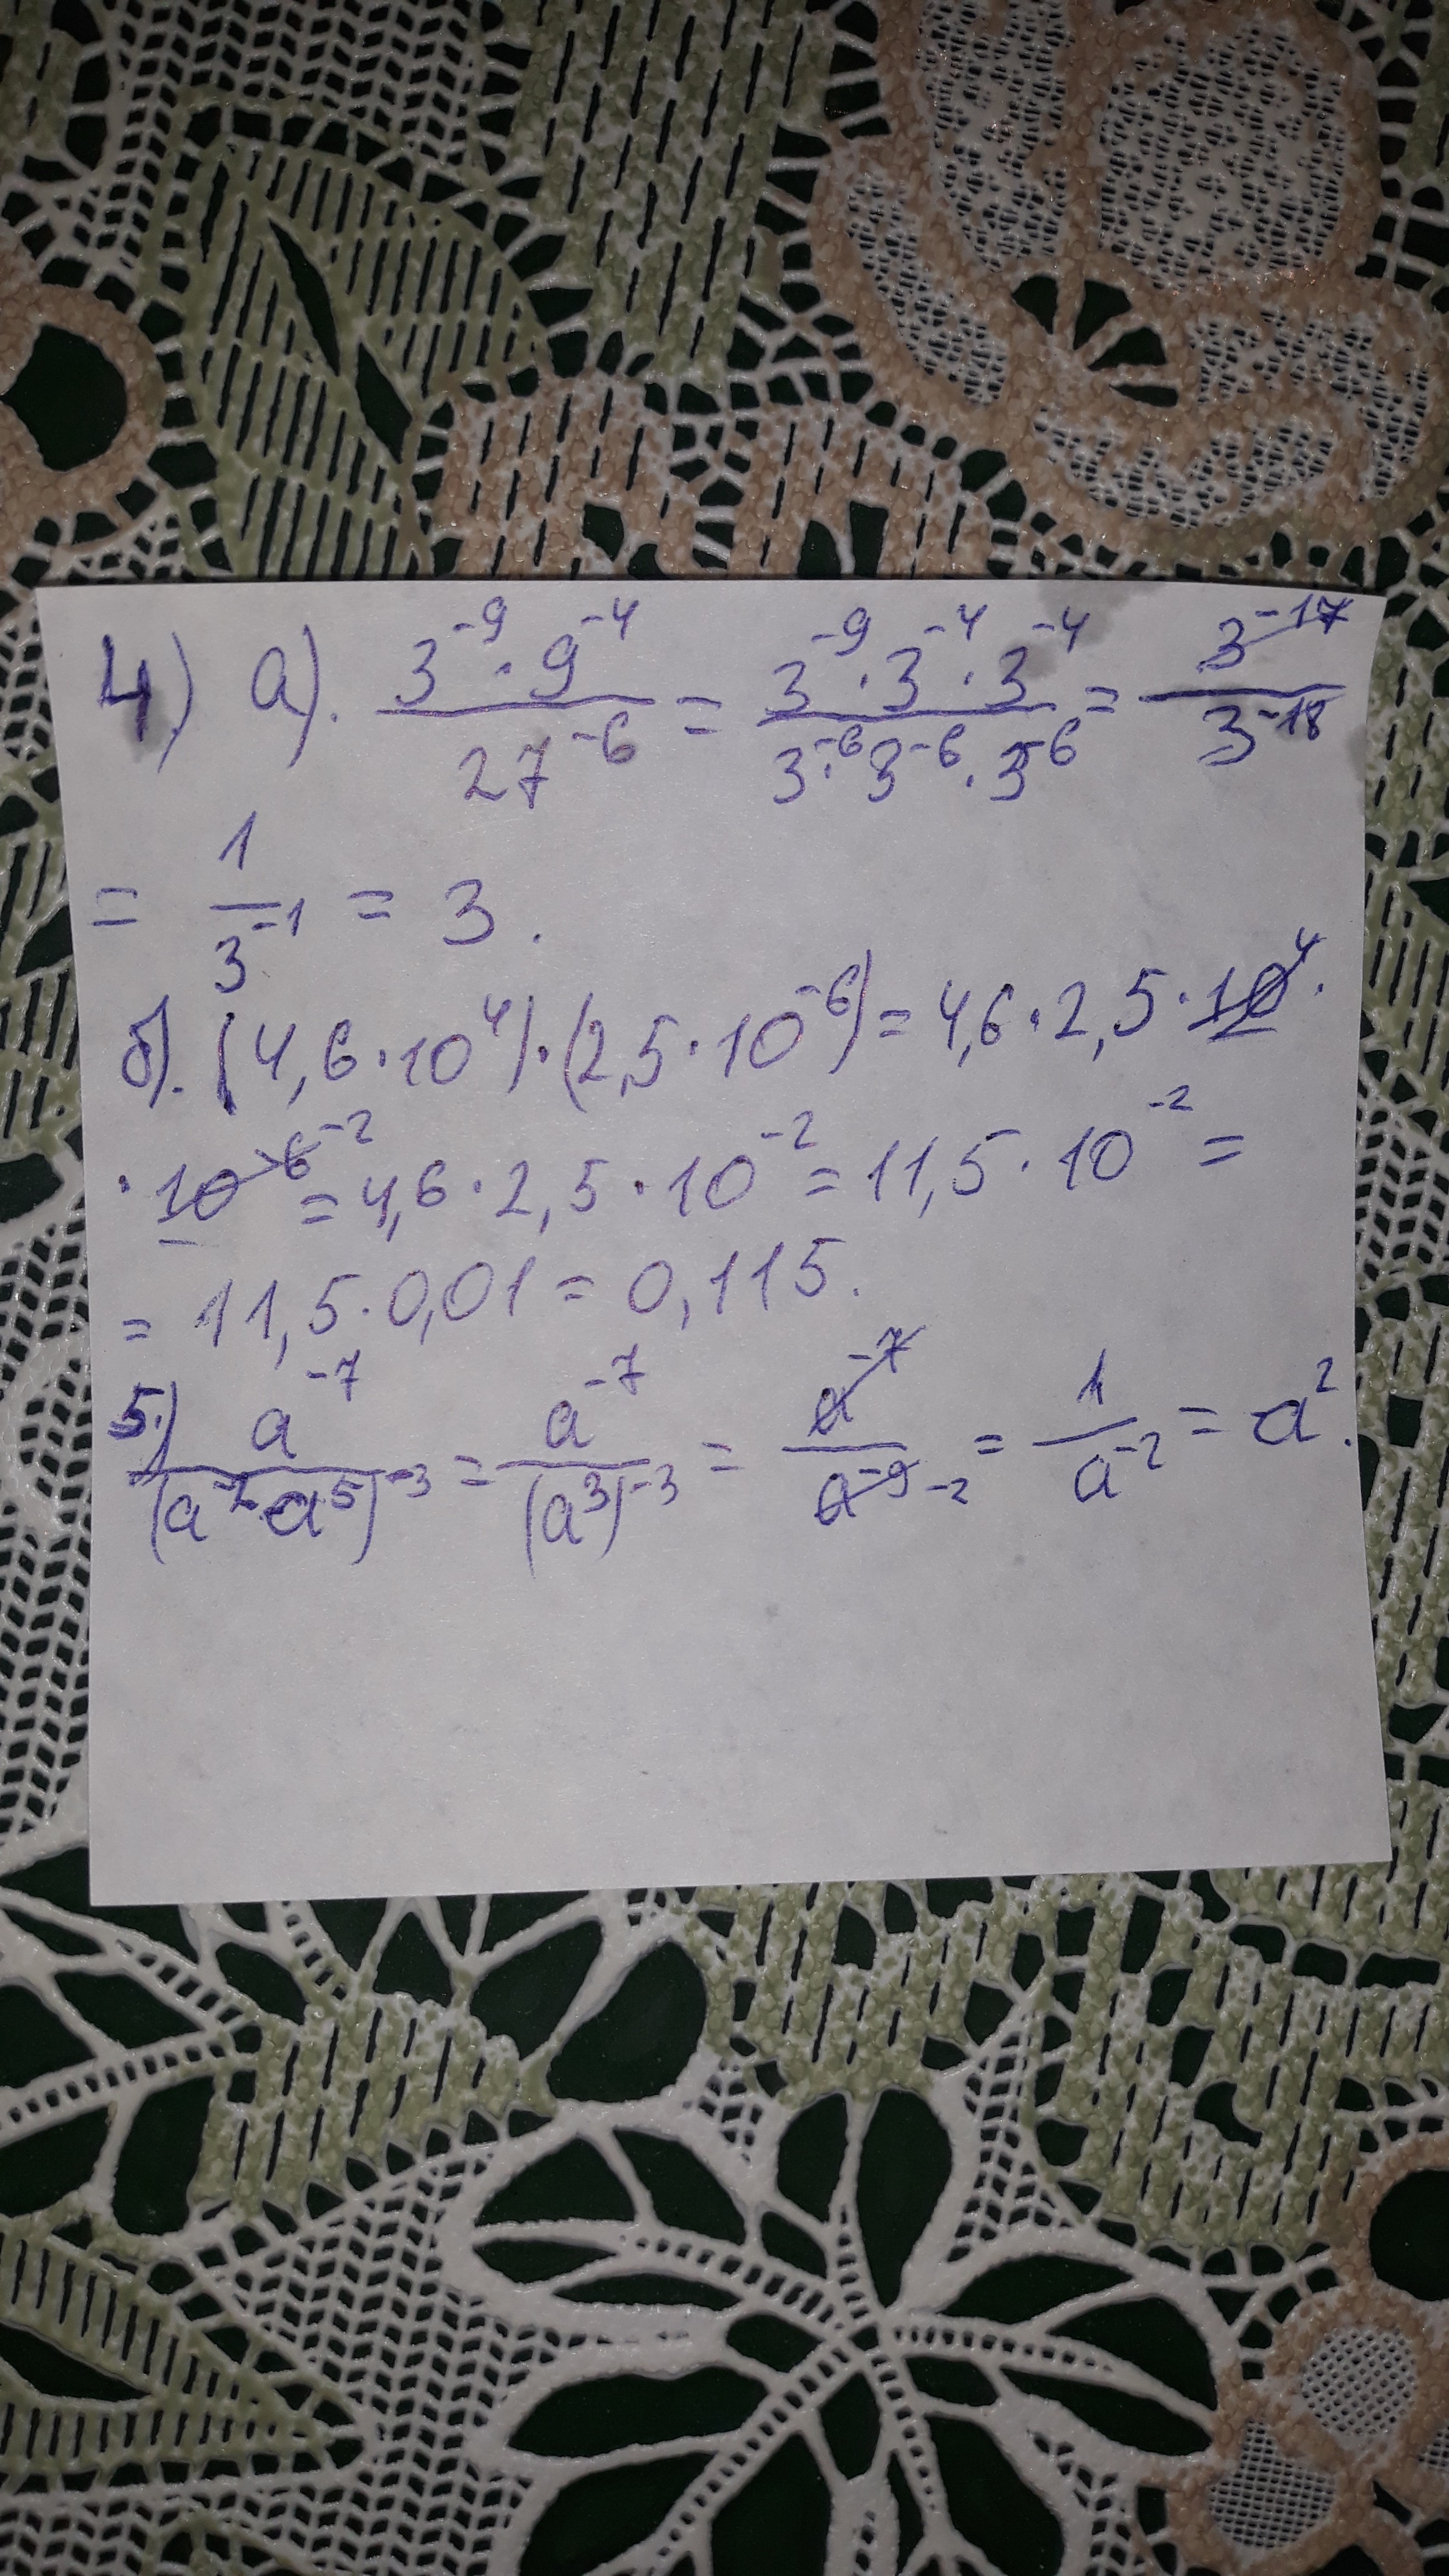 4) а). (3^-9 · 9^-4)/(27^-6) = (3^-9 · 3^-4 · 3^-4)/(3^-6 · 3^-6 · 3^-6) = (3^-17)/(3^-18)
= 1/(3^-1) = 3.
б). (4,6 · 10^4) · (2,5 · 10^-6) = 4,6 · 2,5 · 10^4 ·
· 10^-6 -2 = 4,6 · 2,5 · 10^-2 = 11,5 · 10^-2 =
= 11,5 · 0,01 = 0,115.
5.) (a^-7)/((a^-2 · a^5)^-3) = (a^-7)/((a^3)^-3) = (a^-7)/(a^-9 -2) = 1/(a^-2) = a^2.